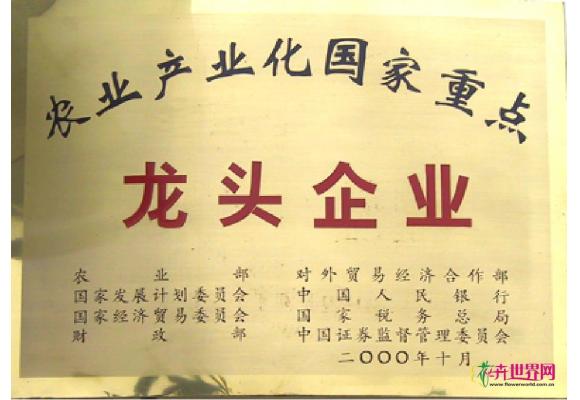 农业产业化国家重点
龙头企业
农业部 对外贸易经济合作部
国家发展计划委员会 中国人民银行
国家经济贸易委员会 国家税务总局
财政部 中国证券监督管理委员会
二〇〇〇年十月
花卉世界网
www.flowerworld.com.cn